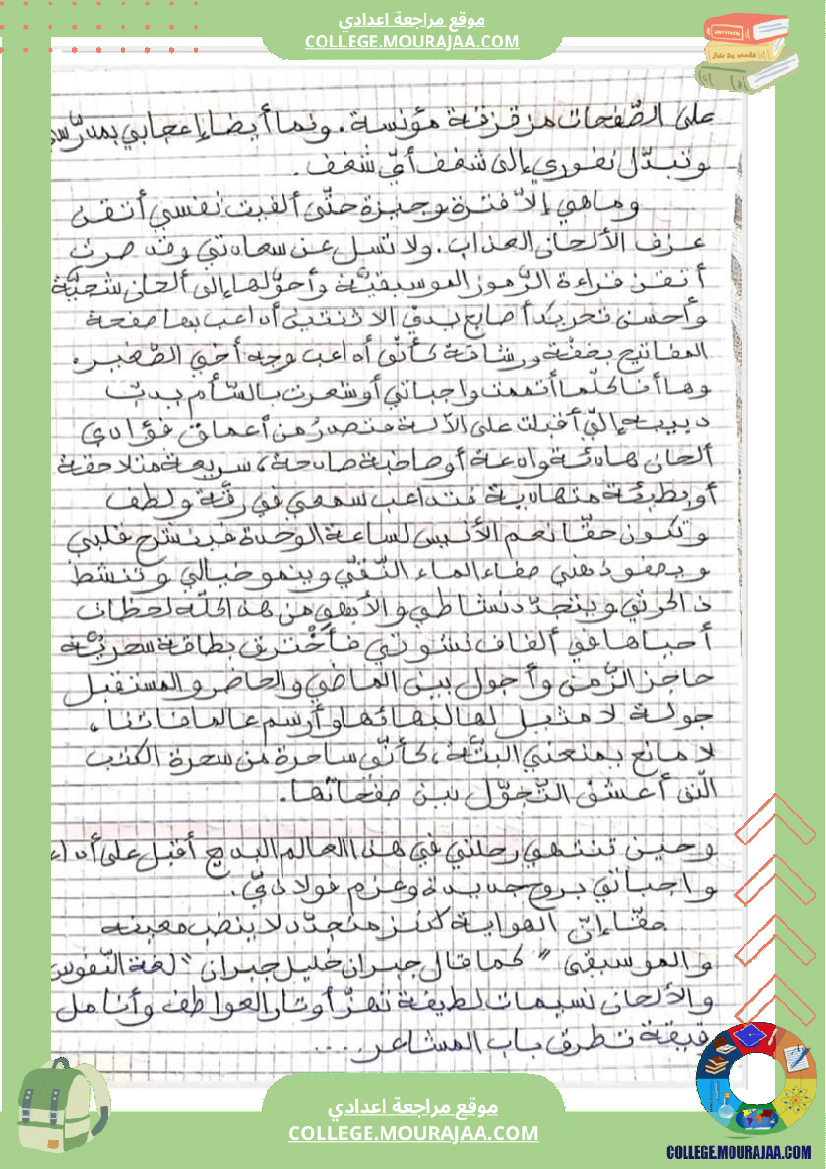 موقع مراجعة اعدادي
COLLEGE.MOURAJAA.COM
على الصّفحات مزقزقة مؤنسة. ونما أيضا إعجابي بمدرّس
وتبدّل نفوري إلى شغف أيّ شغف.
وماهي إلاّ فترة وجيزة حتّى ألفيت نفسي أتقن
عزف الألحان العذاب. ولا تسل عن سعادتي وقد صرت
أتقن قراءة الرّموز الموسيقيّة وأحوّلها إلى ألحان شجيّة
وأحسن تحريك أصابع يديّ الاثنتين أداعب بها صفحة
المفاتيح بخفّة ورشاقة كأنّي أداعب وجه أخي الصّغير.
وها أنا كلّما أتممت واجباتي أو شعرت بالسّأم يدبّ
دبيبه إليّ أقبلت على الآلة فتصدرُ من أعماق فؤادي
ألحان هادئة وادعة أو صاخبة صادحة، سريعة متلاحقة
أو بطيئة متهادية تداعب سمعي في رقّة ولطف
وتكون حقّا نعم الأنيس لساعة الوحدة فينشرح قلبي
ويصفو ذهني صفاء الماء النّقيّ وينمو خيالي وتنشط
ذاكرتي ويتجدّد نشاطي والأبهى من هذا كلّه لحظات
أحياها في ألفاف نشوتي فأَخْترق بطاقة سحريّة
حاجز الزّمن وأجول بين الماضي والحاضر والمستقبل
جولة لا مثيل لها لبهائها وأرسم عالما فاتنا.
لا مانع يمنعني البتّة، كأنّي ساحرة من سحرة الكتب
الّتي أعشق التّجوّل بين صفحاتها.
وحين تنتهي رحلتي في هذا العالم البديع أقبل على أداء
واجباتي بروح جديدة وعزم فولاذيّ.
حقّا إنّ الهواية كنز متجدّد لا ينضب معينه
والموسيقى " كما قال جبران خليل جبران " لغة النّفوس
والألحان نسيمات لطيفة تهزّ أوتار العواطف وأنامل
رقيقة تطرق باب المشاعر....
موقع مراجعة اعدادي
COLLEGE.MOURAJAA.COM
COLLEGE.MOURAJAA.COM